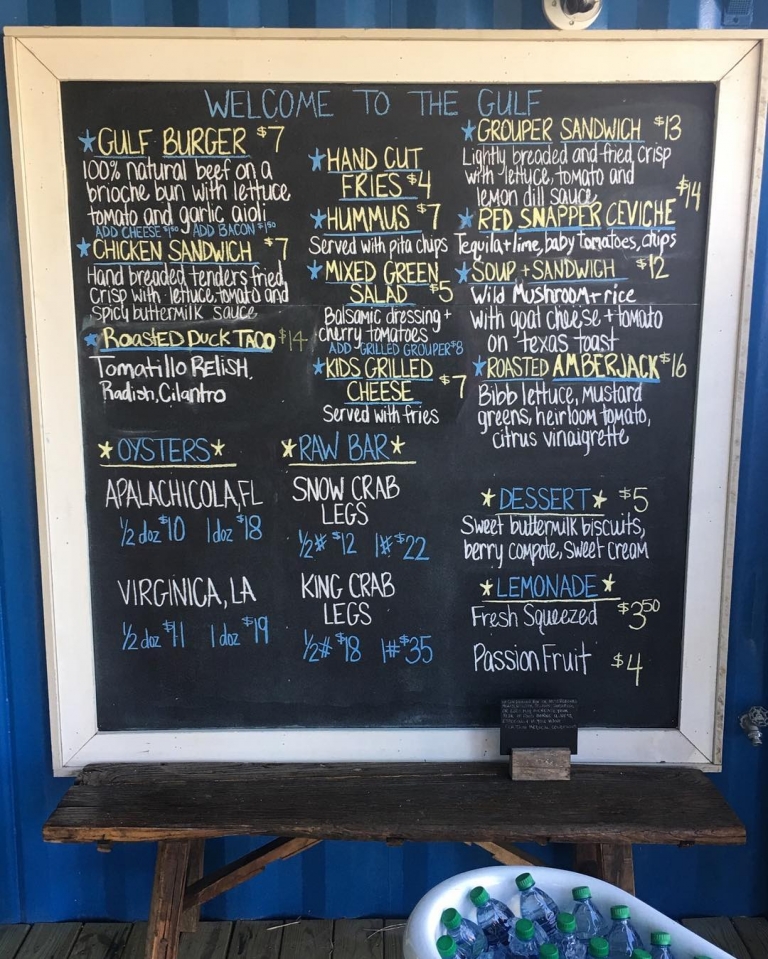 WELCOME TO THE GULF
★GULF BURGER $7
100% natural beef on a
brioche bun with lettuce
tomato and garlic aioli
ADD CHEESE $1.50 ADD BACON $1.50
★CHICKEN SANDWICH $7
Hand breaded tenders fried
crisp with lettuce tomato and
spicy buttermilk sauce
★ROASTED DUCK TACO $14
Tomatillo Relish,
Radish, Cilantro
★HAND CUT
FRIES $4
★HUMMUS $7
Served with pita chips
★MIXED GREEN
SALAD $5
Balsamic dressing +
cherry tomatoes
ADD GRILLED GROUPER $8
★KIDS GRILLED
CHEESE $7
Served with fries
★GROUPER SANDWICH $13
Lightly breaded and fried crisp
with lettuce, tomato and
lemon dill sauce
★RED SNAPPER CEVICHE $14
Tequila + lime, baby tomatoes, chips
★SOUP + SANDWICH $12
Wild Mushroom + rice
with goat cheese + tomato
on texas toast
★ROASTED AMBERJACK $16
Bibb lettuce, mustard
greens, heirloom tomato,
citrus vinaigrette
★OYSTERS★
APALACHICOLA, FL
1/2 doz $10 1 doz $18
VIRGINICA, LA
1/2 doz $11 1 doz $19
★RAW BAR★
SNOW CRAB
LEGS
1/2# $12 1# $22
KING CRAB
LEGS
1/2# $18 1# $35
★DESSERT★ $5
Sweet buttermilk biscuits,
berry compote, sweet cream
★LEMONADE★
Fresh Squeezed $3.50
Passion Fruit $4